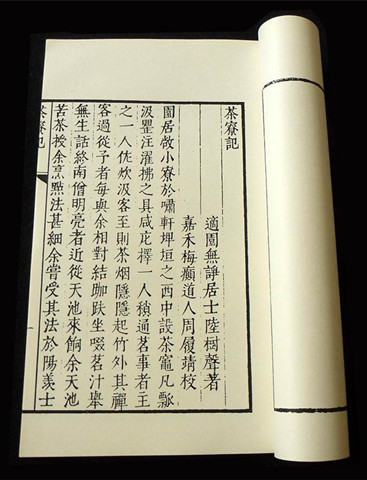 茶寮記
適園無諍居士陸樹聲著
嘉禾梅癲道人周履靖校
園居敞小寮於嘯軒埤垣之西中設茶竈凡瓢
汲罌注濯拂之具咸庀擇一人稍通茗事者主
之一人佐炊汲客至則茶烟隱隱起竹外其禪
客過從予者每與余相對結跏趺坐啜茗汁舉
無生話終南僧明亮者近從天池來餉余天池
苦茶授余烹點法甚細余嘗受其法於陽羨士
茶寮記